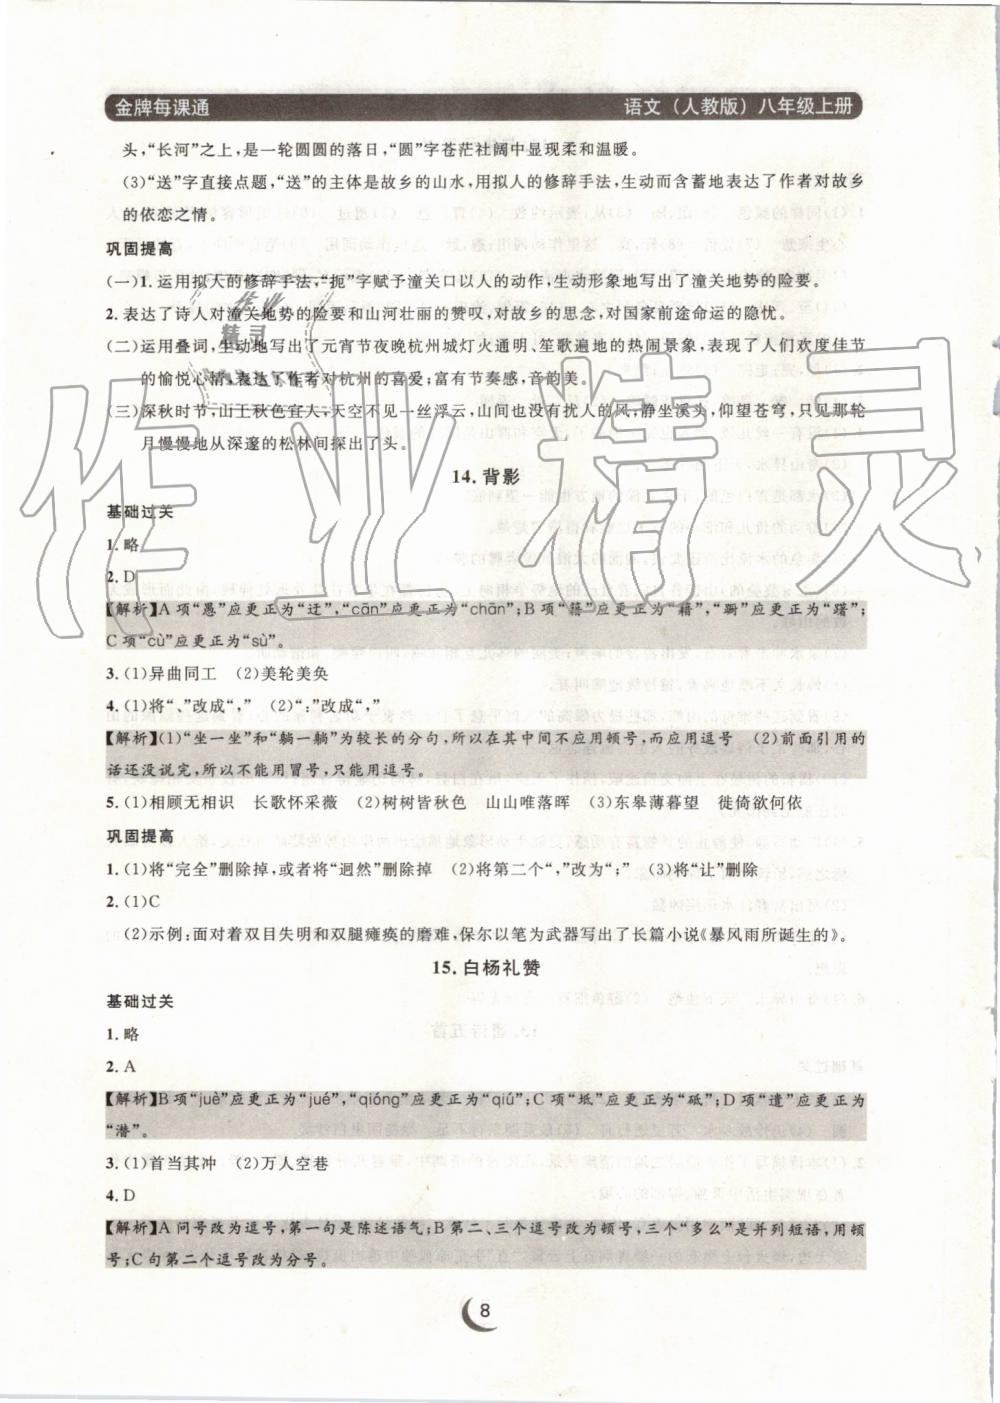 金牌每课通
语文（人教版）八年级上册
头，“长河”之上，是一轮圆圆的落日，“圆”字苍茫壮阔中显现柔和温暖。
(3)“送”字直接点题，“送”的主体是故乡的山水，用拟人的修辞手法，生动而含蓄地表达了作者对故乡
的依恋之情。
巩固提高
(一)1.运用拟人的修辞手法，“扼”字赋予潼关口以人的动作，生动形象地写出了潼关地势的险要。
2.表达了诗人对潼关地势的险要和山河壮丽的赞叹，对故乡的思念，对国家前途命运的隐忧。
(二)运用叠词，生动地写出了元宵节夜晚杭州城灯火通明、笙歌遍地的热闹景象，表现了人们欢度佳节
的愉悦心情，表达了作者对杭州的喜爱；富有节奏感，音韵美。
(三)深秋时节，山上秋色宜人，天空不见一丝浮云，山间也没有扰人的风，静坐溪头，仰望苍穹，只见那轮
月慢慢地从深邃的松林间探出了头。
14.背影
基础过关
1.略
2.D
【解析】A项“愚”应更正为“迂”，“cān”应更正为“chān”；B项“籍”应更正为“藉”，“蹰”应更正为“躇”；
C项“cù”应更正为“sù”。
3.(1)异曲同工　(2)美轮美奂
4.(1)将“、”改成“，”　(2)“：”改成“，”
【解析】(1)“坐一坐”和“躺一躺”为较长的分句，所以在其中间不应用顿号，而应用逗号　(2)前面引用的
话还没说完，所以不能用冒号，只能用逗号。
5.(1)相顾无相识　长歌怀采薇　(2)树树皆秋色　山山唯落晖　(3)东皋薄暮望　徙倚欲何依
巩固提高
1.(1)将“完全”删除掉，或者将“迥然”删除掉　(2)将第二个“，”改为“；”　(3)将“让”删除
2.(1)C
(2)示例：面对着双目失明和双腿瘫痪的磨难，保尔以笔为武器写出了长篇小说《暴风雨所诞生的》。
15.白杨礼赞
基础过关
1.略
2.A
【解析】B项“juè”应更正为“jué”，“qióng”应更正为“qiú”；C项“坻”应更正为“砥”；D项“遣”应更正为
“潜”。
3.(1)首当其冲　(2)万人空巷
4.D
【解析】A问号改为逗号，第一句是陈述语气；B第二、三个逗号改为顿号，三个“多么”是并列短语，用顿
号；C句第二个逗号改为分号。
8
作业精灵
作业
精灵